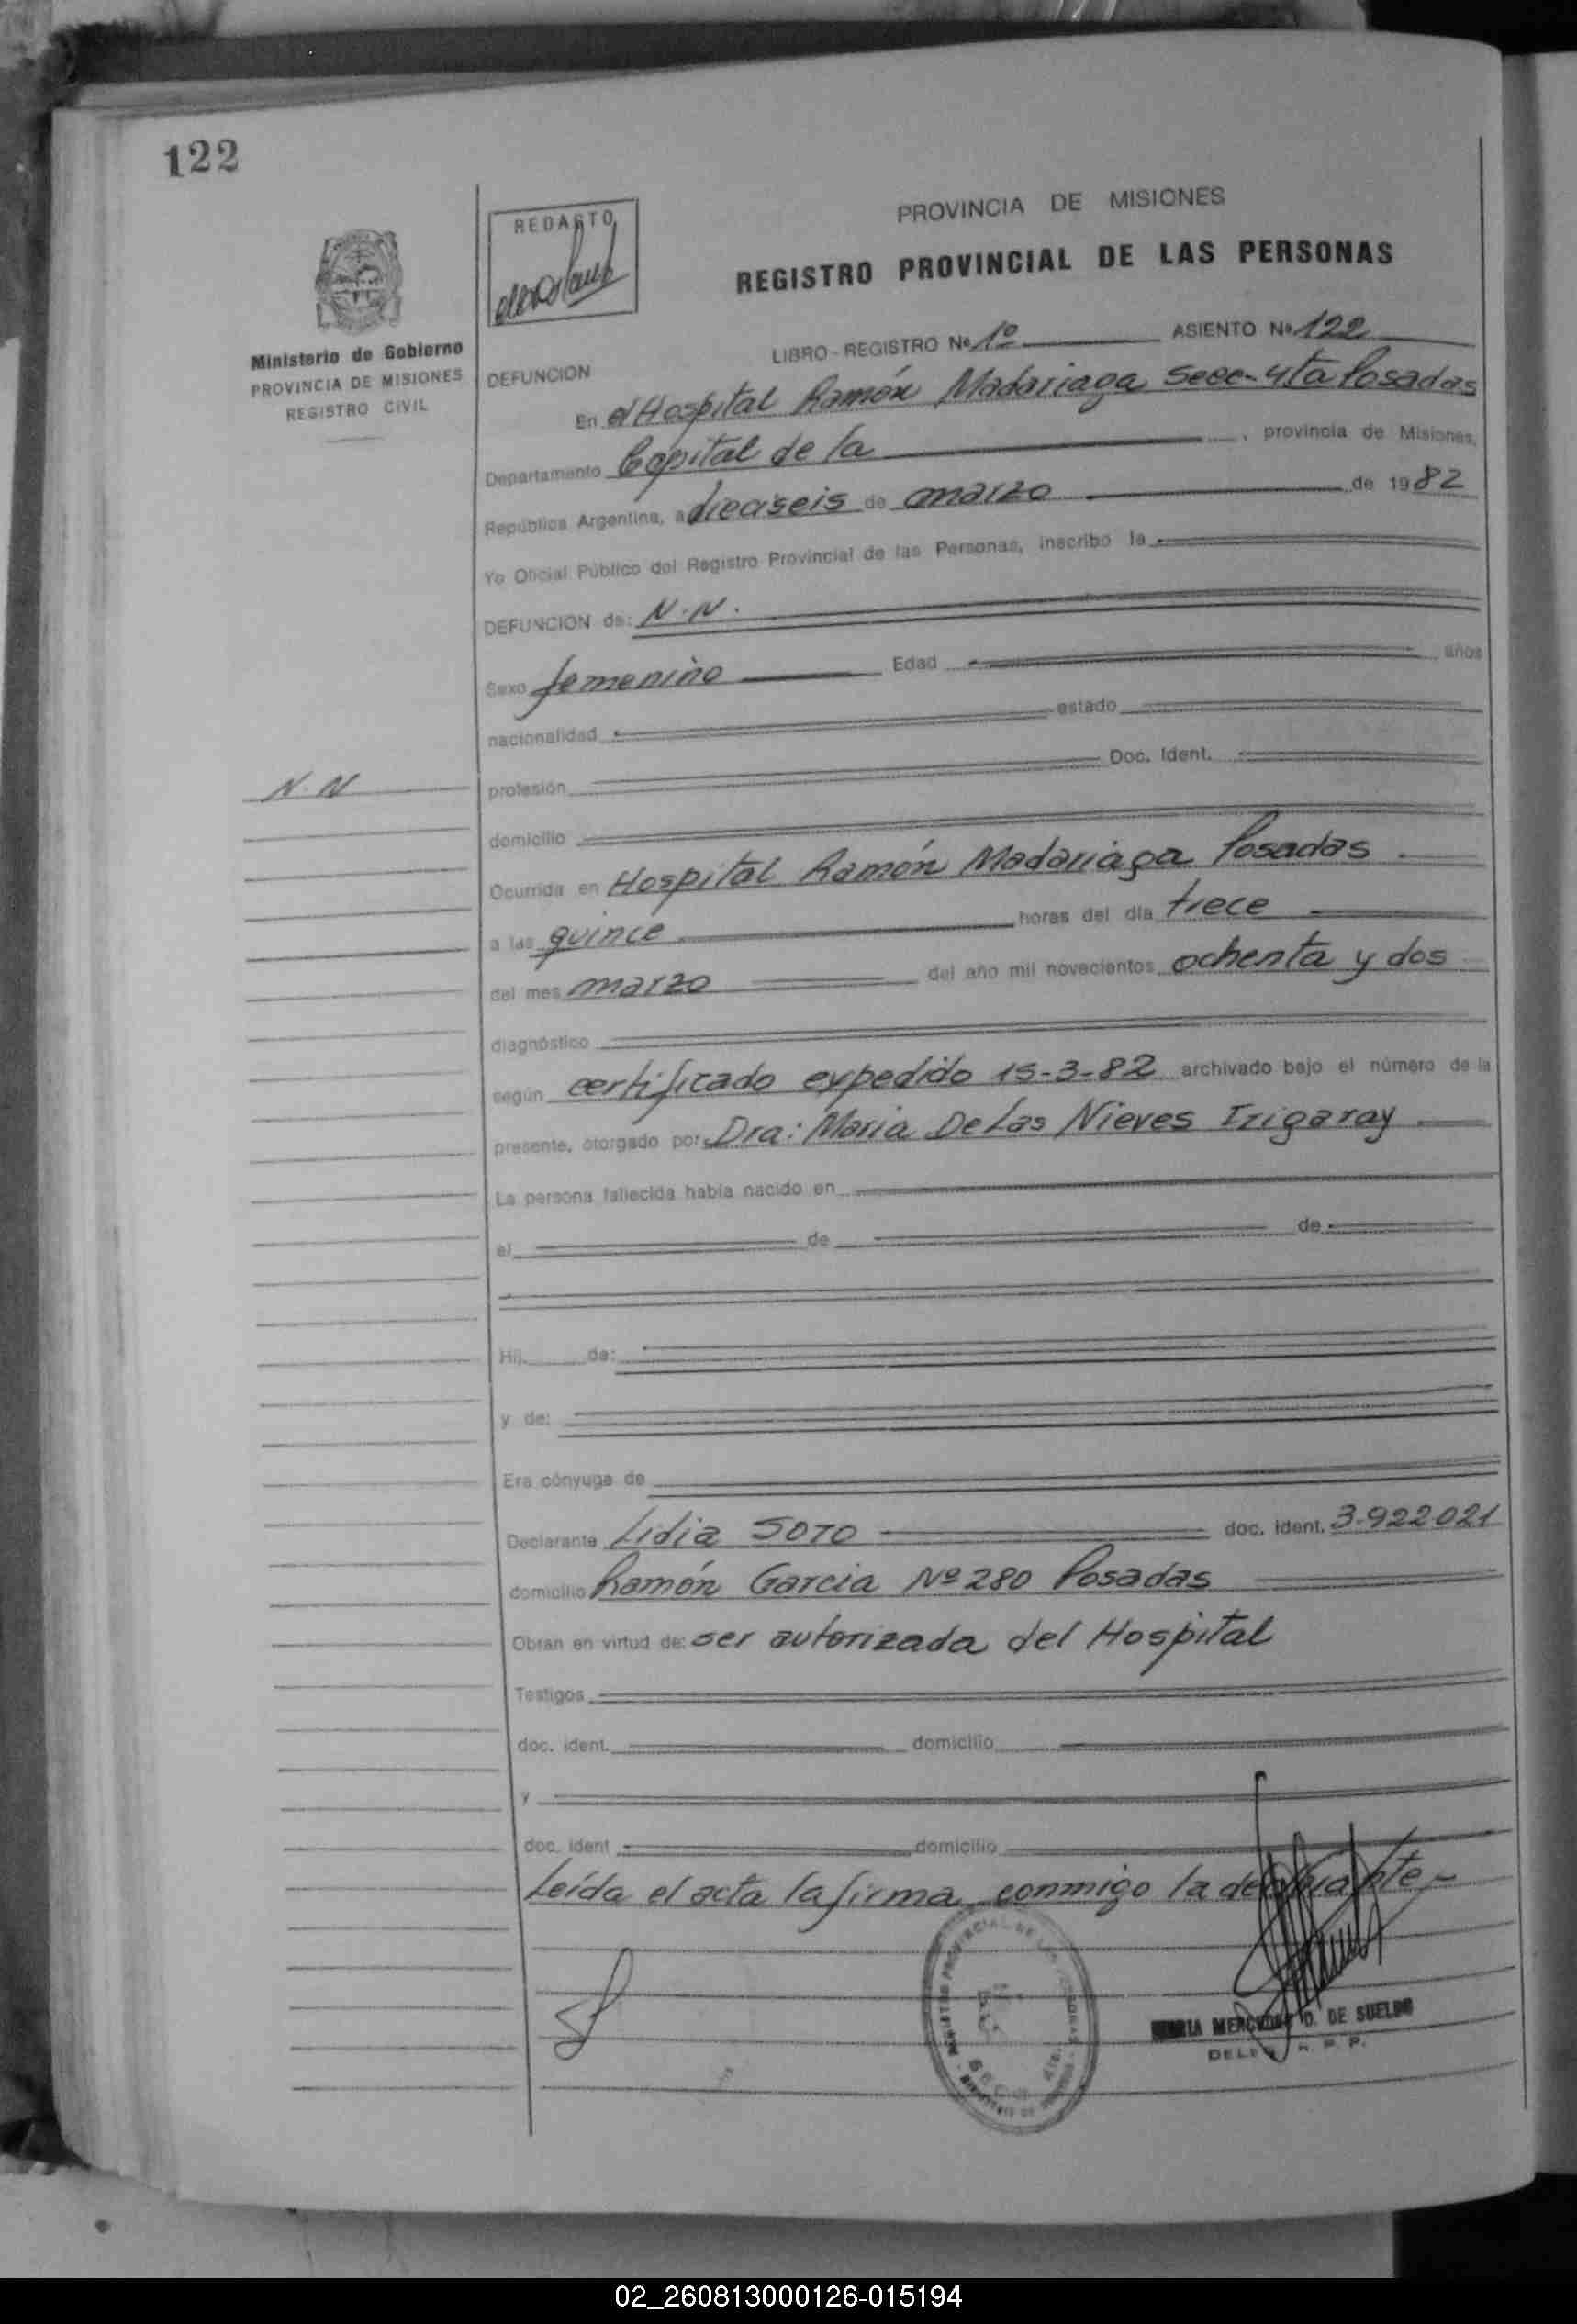 122
REDACTO
PROVINCIA DE MISIONES
REGISTRO PROVINCIAL DE LAS PERSONAS
Ministerio de Gobierno
PROVINCIA DE MISIONES
REGISTRO CIVIL
LIBRO - REGISTRO Nº 1º ASIENTO Nº 122
DEFUNCION
En el Hospital Ramón Madariaga Secc- 4ta Posadas
Departamento Capital de la , provincia de Misiones,
República Argentina, a dieciseis de marzo de 1982
Yo Oficial Público del Registro Provincial de las Personas, inscribo la
DEFUNCION de: N.N.
Sexo femenino Edad años
nacionalidad estado
N.N
profesión Doc. Ident.
domicilio
Ocurrida en Hospital Ramón Madariaga Posadas
a las quince horas del día trece
del mes marzo del año mil novecientos ochenta y dos
diagnóstico
según certificado expedido 15-3-82 archivado bajo el número de la
presente, otorgado por Dra: Maria De Las Nieves Irigaray
La persona fallecida había nacido en
el de de
Hij de:
y de:
Era cónyuge de
Declarante Lidia SOTO doc. ident. 3-922021
domicilio Ramón Garcia Nº 280 Posadas
Obran en virtud de: ser autorizada del Hospital
Testigos
doc. ident. domicilio
y
doc. ident domicilio
Leída el acta la firma conmigo la declarante-
MARIA MERCEDES D. DE SUELDO
02_260813000126-015194